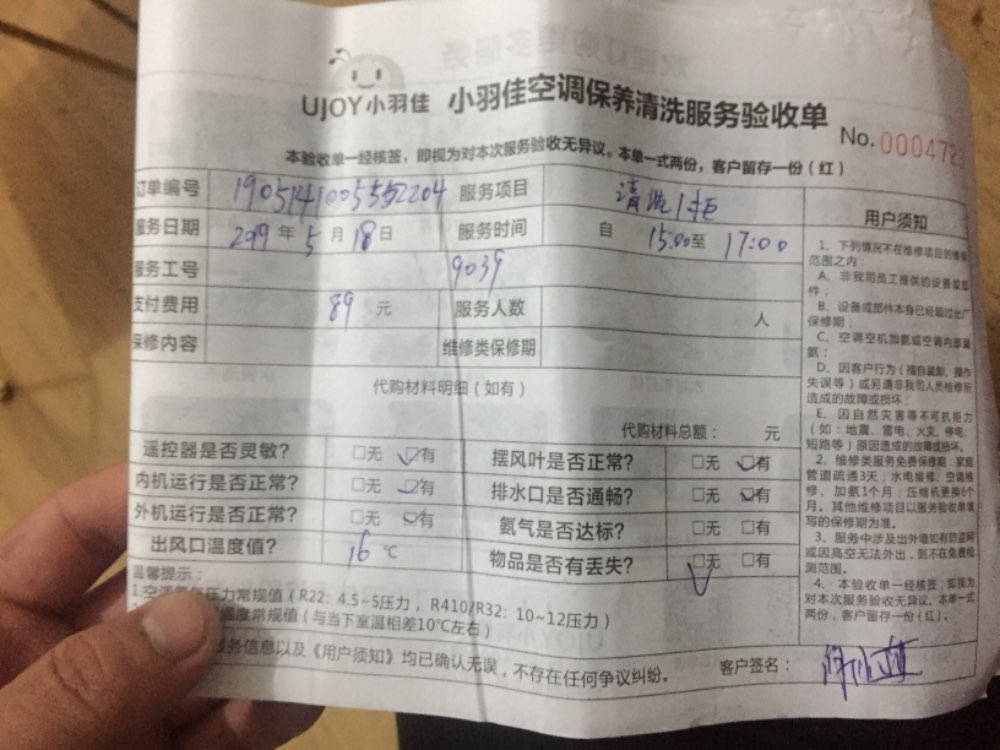 UJOY小羽佳 小羽佳空调保养清洗服务验收单
No. 0004723
本验收单一经核签，即视为对本次服务验收无异议。本单一式两份，客户留存一份（红）
订单编号 服务项目 清洗1柜
服务日期 2019 年 5 月 18 日 服务时间 自 15:00 至 17:00
服务工号 9039
支付费用 89 元 服务人数 人
保修内容 维修类保修期
代购材料明细（如有）
代购材料总额： 元
遥控器是否灵敏？ □无 □有 摆风叶是否正常？ □无 □有
内机运行是否正常？ □无 □有 排水口是否通畅？ □无 □有
外机运行是否正常？ □无 □有 氨气是否达标？ □无 □有
出风口温度值？ 16 ℃ 物品是否有丢失？ □无 □有
温馨提示：
压力常规值（R22：4.5~5压力，R410/R32：10~12压力）
温度常规值（与当下室温相差10℃左右）
服务信息以及《用户须知》均已确认无误，不存在任何争议纠纷。 客户签名：
用户须知
1、下列情况不在维修项目的维保
范围之内：
A、非我司员工提供的设备或部
件；
B、设备或部件本身已经超过出厂
保修期；
C、空调空机加氨或空调内部漏
氨；
D、因客户行为（擅自装卸、操作
失误等）或另请非我司人员检修所
造成的故障或损坏；
E、因自然灾害等不可抗拒力
（如：地震、雷电、火灾、停电、
短路等）原因造成的故障或损坏。
2、维修类服务免费保修期：家庭
管道疏通3天；水电维修、空调维
修、加氨1个月；压缩机更换6个
月。其他维修项目以服务验收单填
写的保修期为准。
3、服务中涉及出外墙如有防盗网
或因高空无法外出，则不在免费检
测范围。
4、本验收单一经核签，即视为
对本次服务验收无异议。本单一式
两份，客户留存一份（红）。